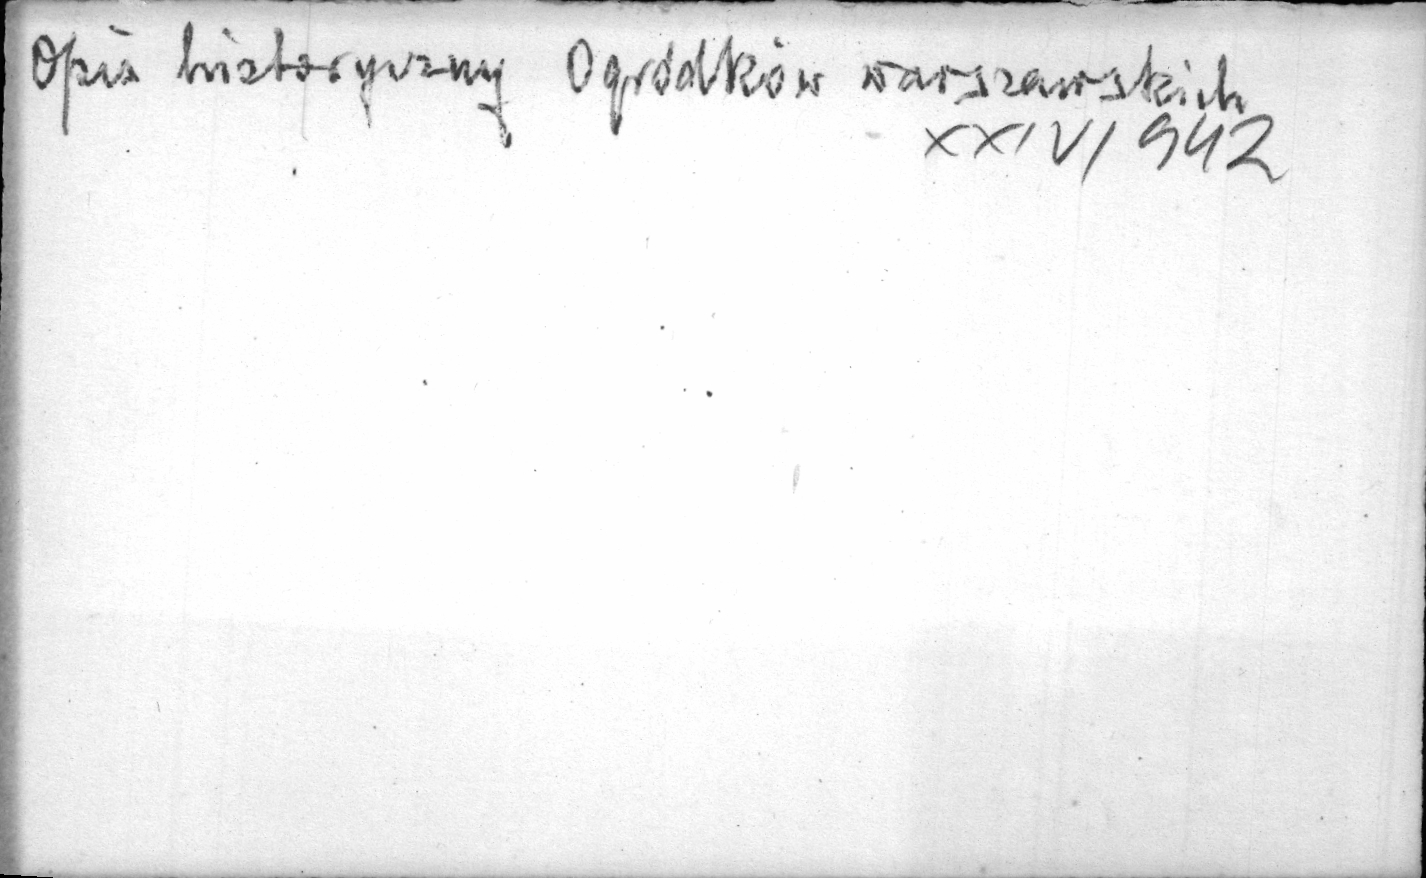 Opis historyczny Ogródków warszawskich
XXIV/942